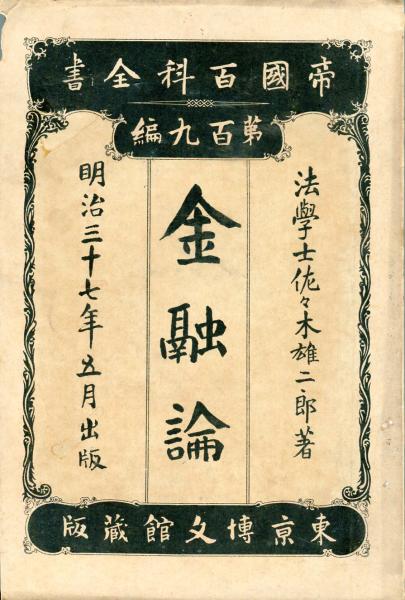 帝國百科全書
第百九編
法學士佐々木雄二郎著
金融論
明治三十七年五月出版
東京博文館藏版